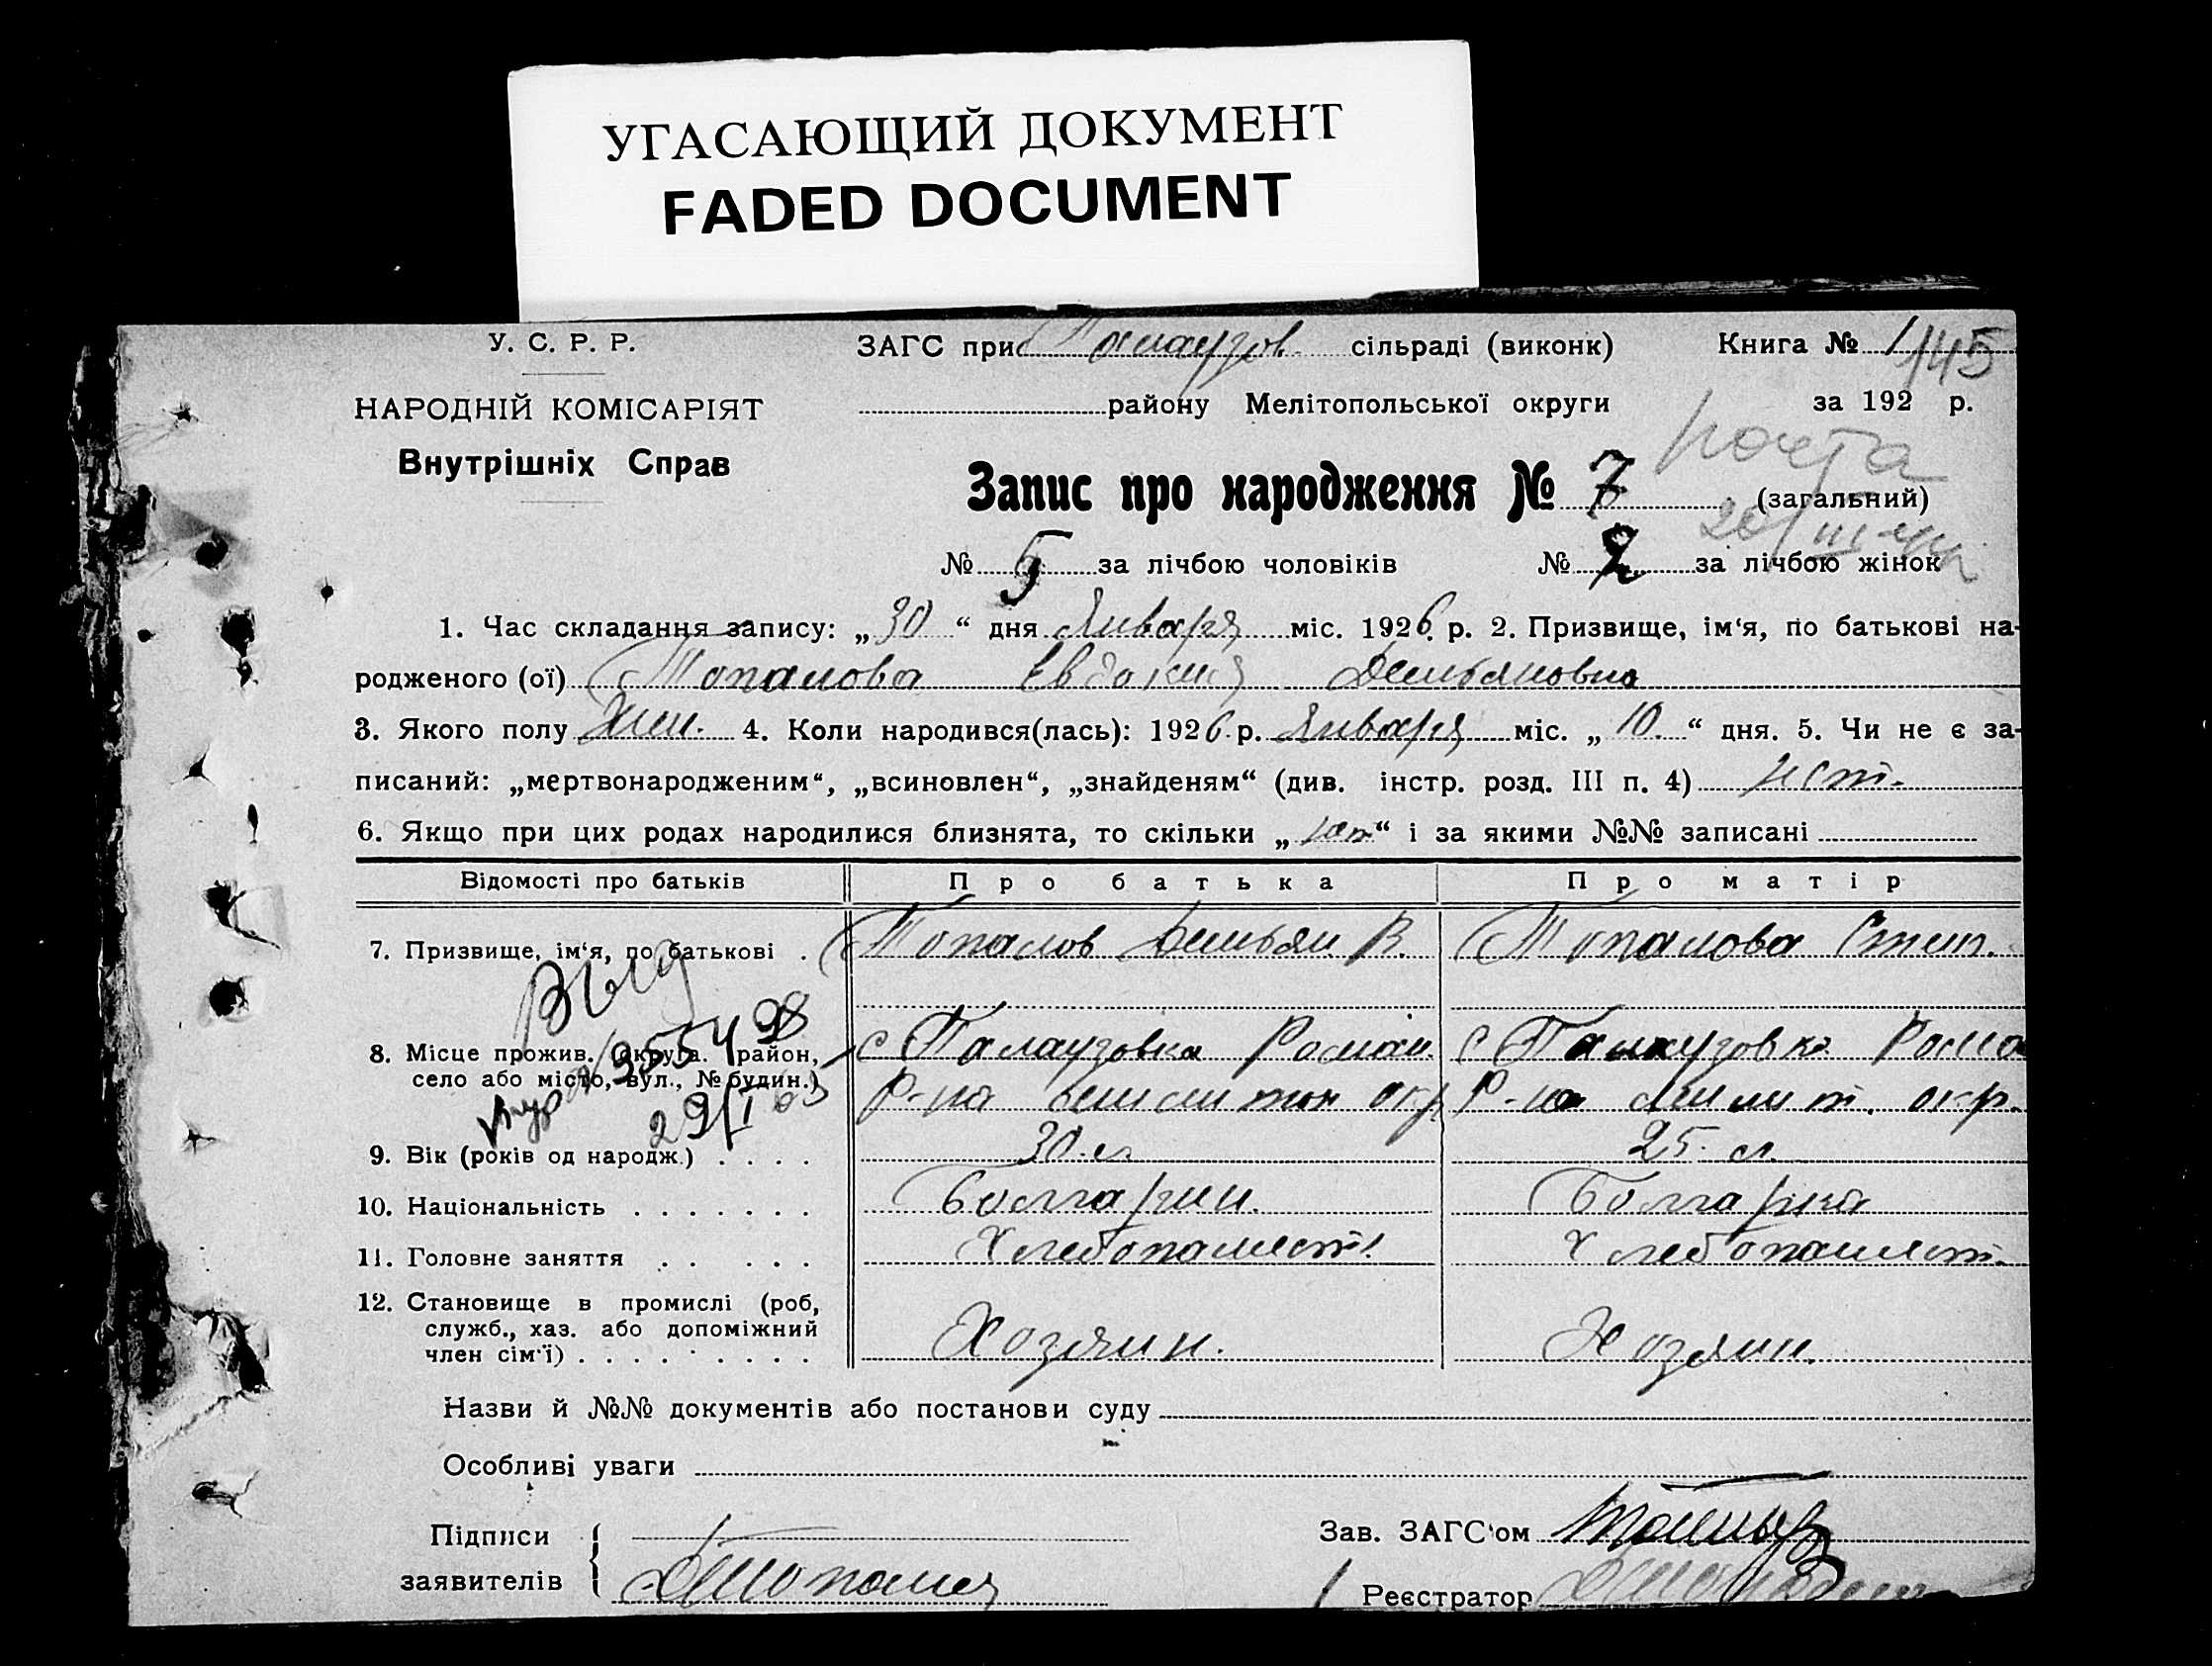 УГАСАЮЩИЙ ДОКУМЕНТ
FADED DOCUMENT
У. С. Р. Р. ЗАГС при Палаузов. сільраді (виконк) Книга № 1
145
НАРОДНІЙ КОМІСАРІЯТ району Мелітопольської округи за 192 р.
Внутрішніх Справ
почта
Запис про народження № 7 (загальний)
№ 5 за лічбою чоловіків № 2 за лічбою жінок
1. Час складання запису: „30“ дня Января міс. 1926. р. 2. Призвище, ім‘я, по батькові на-
родженого (ої) Топалова Евдокия Демьяновна
3. Якого полу Жен. 4. Коли народився(лась): 1926. р. Января міс. „10.“ дня. 5. Чи не є за-
писаний: „мертвонародженим“, „всиновлен“, „знайденям“ (див. інстр. розд. III п. 4) нет.
6. Якщо при цих родах народилися близнята, то скільки „нет“ і за якими №№ записані
Відомості про батьків Про батька Про матір
7. Призвище, ім‘я, по батькові . Топалов Демьян В. Топалова Степ.
8. Місце прожив. (округа. район, с Палаузовка Романов. с Палаузовка Рома
село або місто, вул., № будин.) Р-на мелитоп окр Р-на мелит. окр.
29/I 63
9. Вік (років од народж.) . . . . 30 л 25. л.
10. Національність . . . . . . . Болгарин. Болгарка
11. Головне заняття . . . . . Хлебопашест. Хлебопашест.
12. Становище в промислі (роб,
служб., хаз. або допоміжний Хозяин. Хозяин.
член сім‘ї) . . . . . . . . .
Назви й №№ документів або постанови суду
Особливі уваги
Підписи Зав. ЗАГС‘ом
заявителів ДТопалов Реєстратор